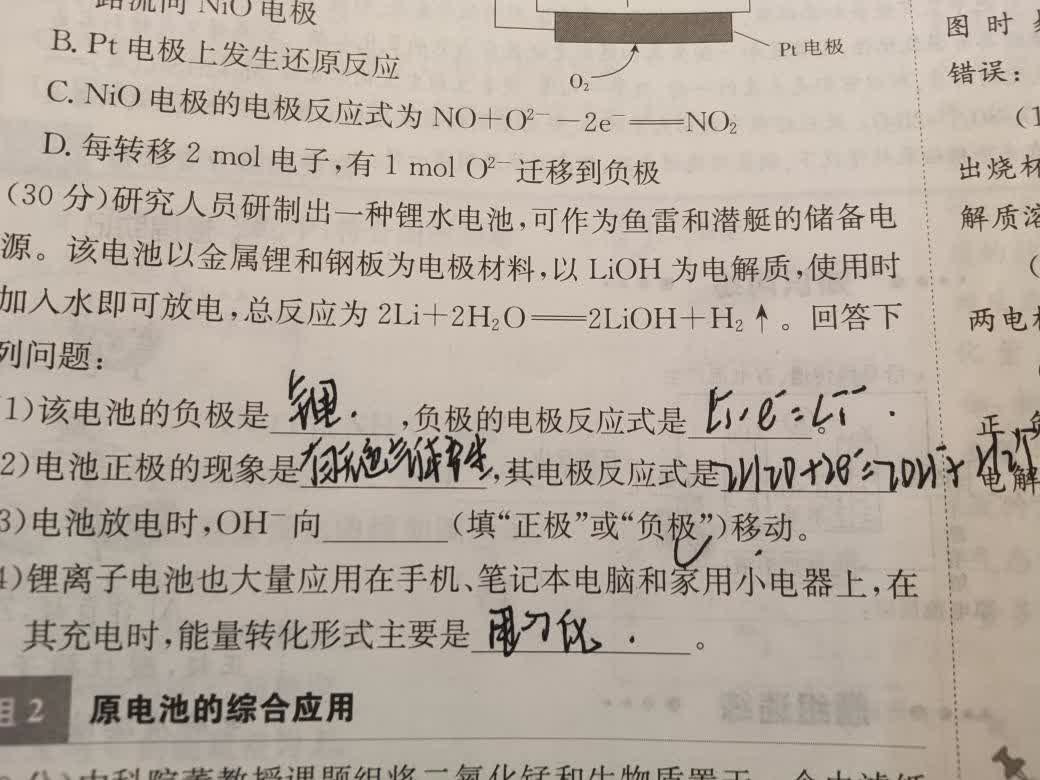 路流向 NiO 电极
B. Pt 电极上发生还原反应
Pt 电极
O₂
C. NiO 电极的电极反应式为 NO+O²⁻−2e⁻══NO₂
D. 每转移 2 mol 电子,有 1 mol O²⁻ 迁移到负极
(30 分)研究人员研制出一种锂水电池,可作为鱼雷和潜艇的储备电
源。该电池以金属锂和钢板为电极材料,以 LiOH 为电解质,使用时
加入水即可放电,总反应为 2Li+2H₂O══2LiOH+H₂↑。回答下
列问题:
1)该电池的负极是 锂 . ,负极的电极反应式是 。
2)电池正极的现象是有无色气体产生,其电极反应式是2H2O+2e⁻=2OH⁻+H2↑
3)电池放电时,OH⁻向 (填“正极”或“负极”)移动。
4)锂离子电池也大量应用在手机、笔记本电脑和家用小电器上,在
其充电时,能量转化形式主要是 。
组 2 原电池的综合应用
图 时
错误:
(1
出烧杯
解质溶
(
两电
正、负
电解